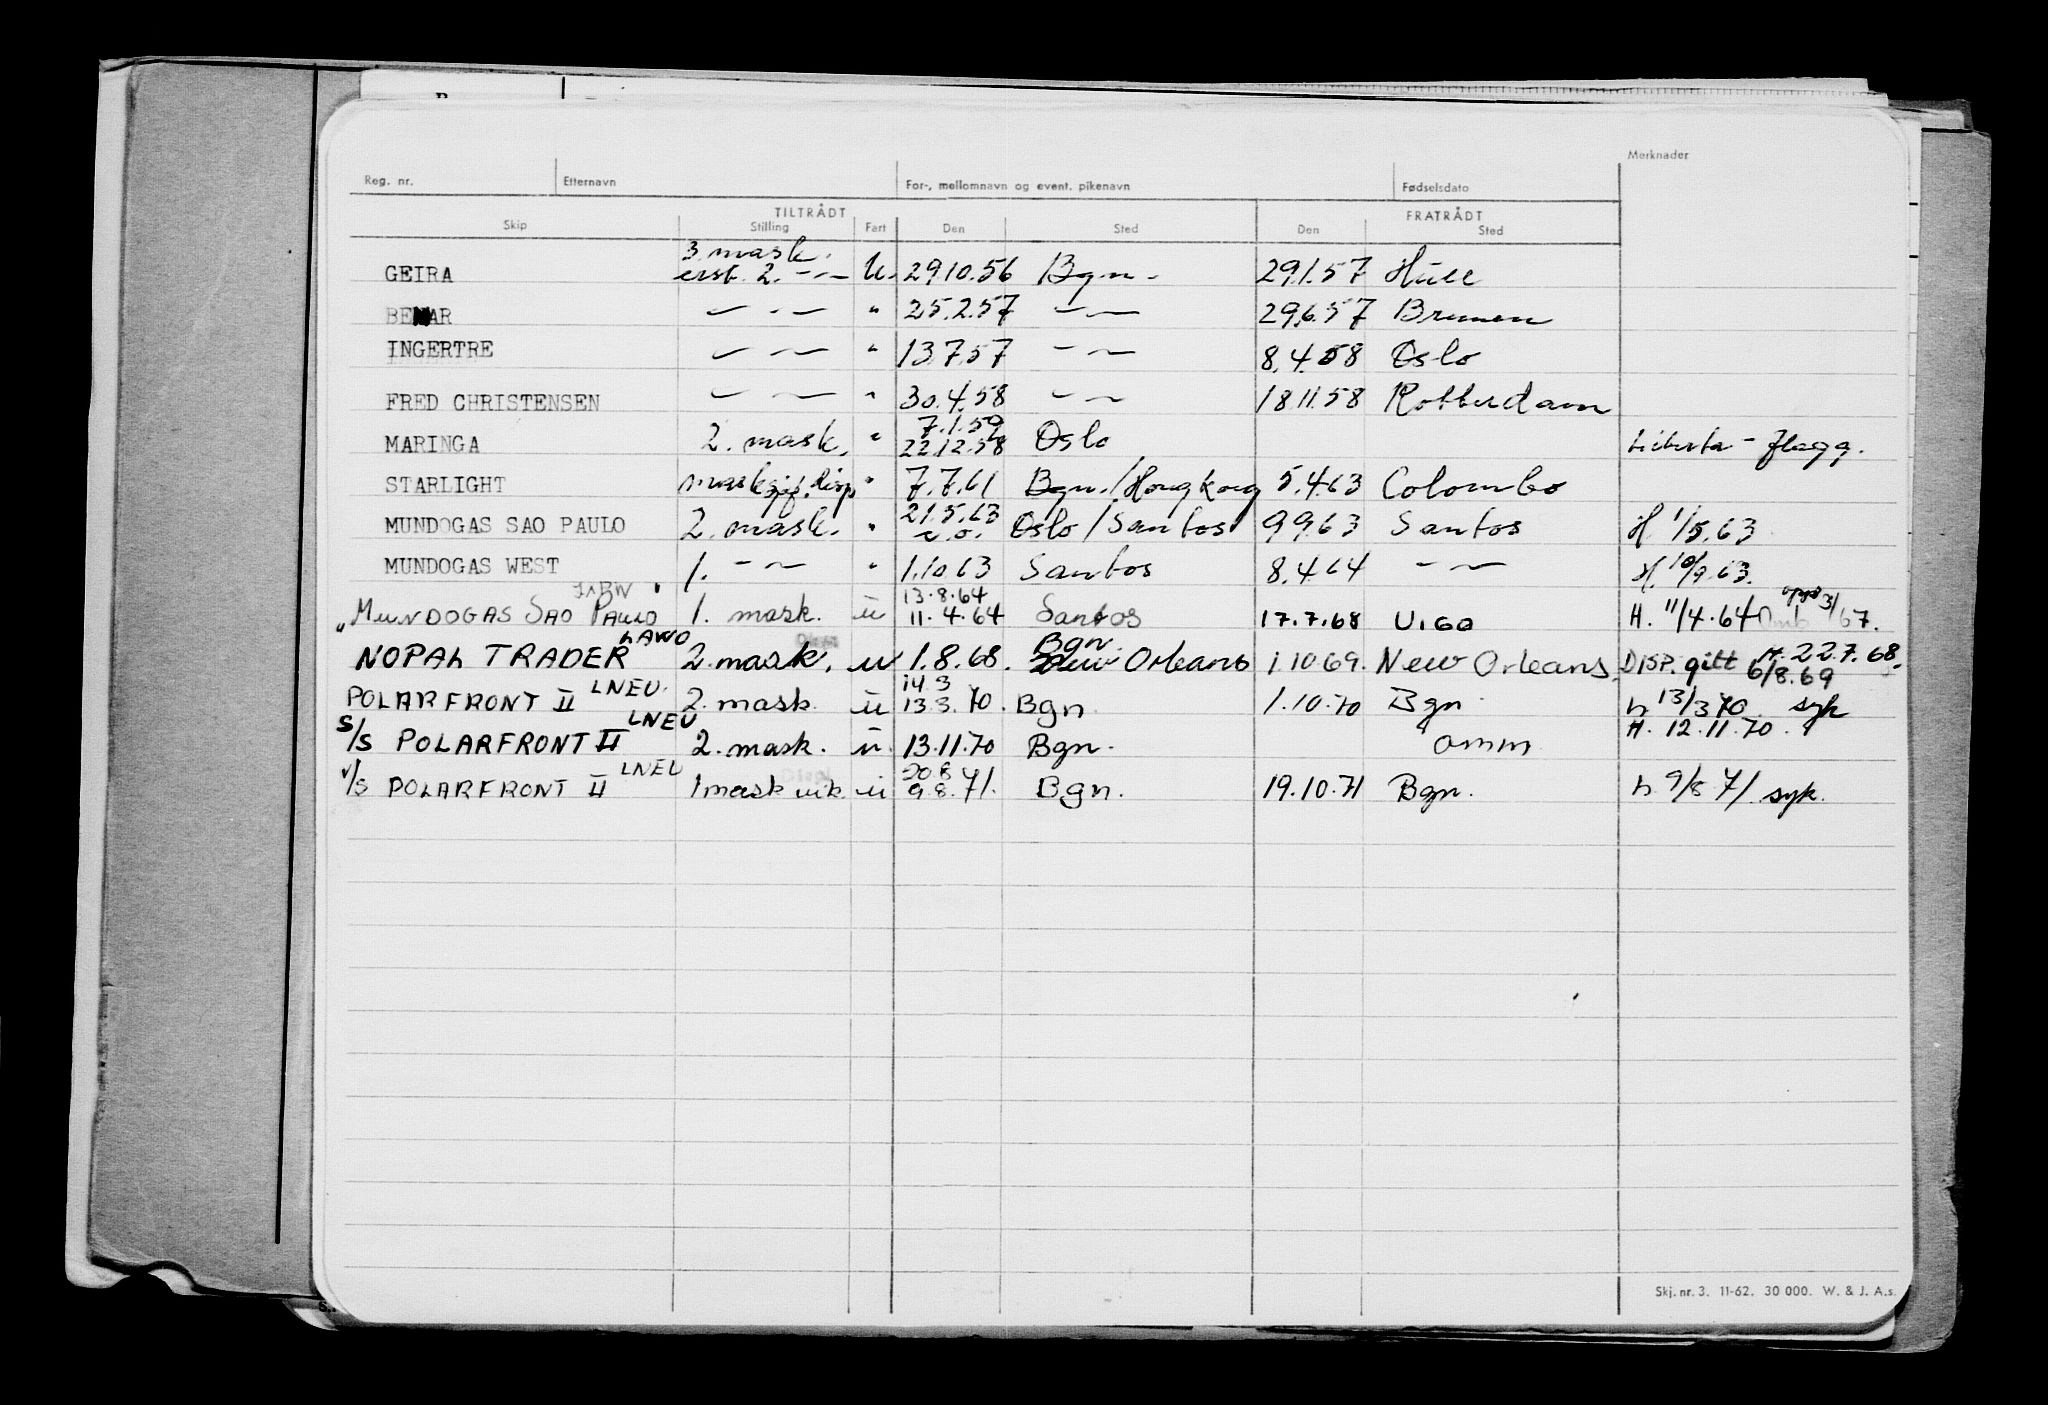 Merknader
Reg. nr. Etternavn For-, mellomnavn og event. pikenavn Fødselsdato
TILTRÅDT FRATRÅDT
Skip Stilling Fart Den Sted Den Sted
3. mask.
GEIRA 2. -"- U. 29.10.56 Bgn. 29.1.57 Hull
BENAR -"- " 25.2.57 -"- 29.6.57 Bremen
INGERTRE -"- " 13.7.57 -"- 8.4.58 Oslo
FRED CHRISTENSEN -"- " 30.4.58 -"- 18.11.58 Rotterdam
7.1.59
MARINGA 2. mask. " 22.12.58 Oslo Liberia - flagg.
STARLIGHT disp " 7.7.61 Bgn./Hong Kong 5.4.63 Colombo
21.5.63
MUNDOGAS SAO PAULO 2. mask. " Oslo/Santos 9.9.63 Santos H 1/5.63
MUNDOGAS WEST 1. -"- " 1.10.63 Santos 8.4.64 -"- H. 10/9.63.
13.8.64
"MUNDOGAS SAO PAULO 1. mask. u 11.4.64 Santos 17.7.68 VIGO H. 11/4.64 3/67.
LAWO Bgn. H. 22.7.68.
NOPAL TRADER 2. mask. u 1.8.68. New Orleans 1.10.69. New Orleans. DISP. gitt 6/8.69
LNEU. 14.3
POLARFRONT II 2. mask. u 13.3.70. Bgn. 1.10.70 Bgn h 13/3 70 syk
LNEU H. 12.11.70.
S/S POLARFRONT II 2. mask. u. 13.11.70 Bgn. omm
LNEU 20.8
V/S POLARFRONT II 1 mask vik. u 9.8.71. Bgn. 19.10.71 Bgn. h 9/8 71 syk.
Skj. nr. 3. 11-62. 30 000. W. & J. A.s.